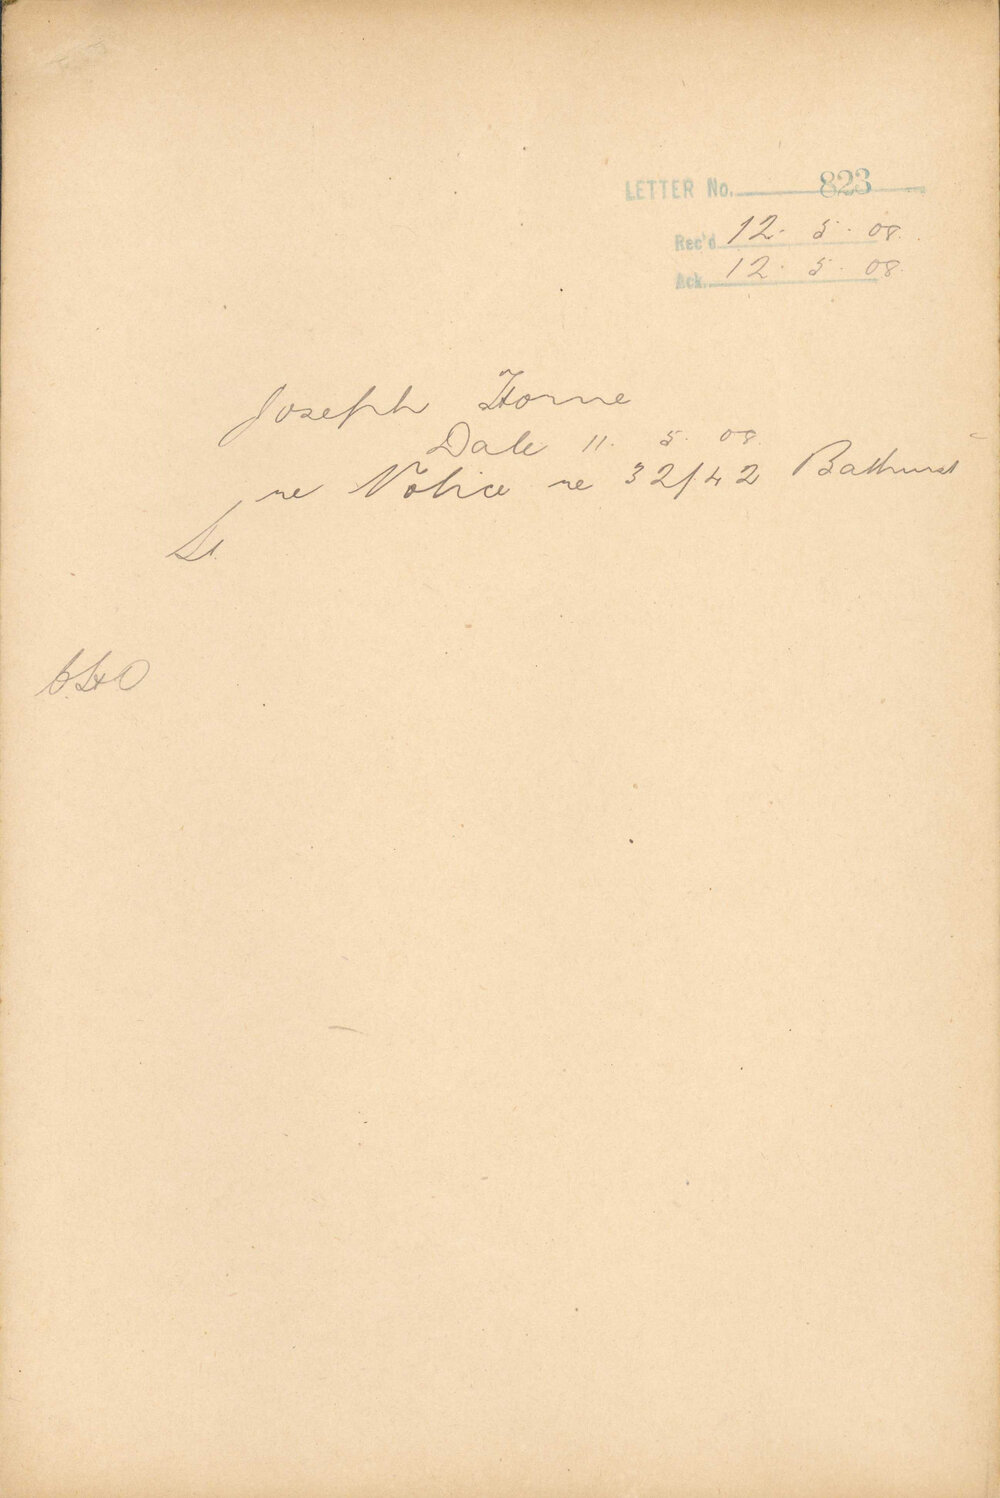 LETTER No. 823
Rec'd 12. 5. 08.
Ack. 12. 5. 08.
Joseph Horne
Date 11. 5. 08.
re Notice re 32/42 Bathurst
St.
CHO